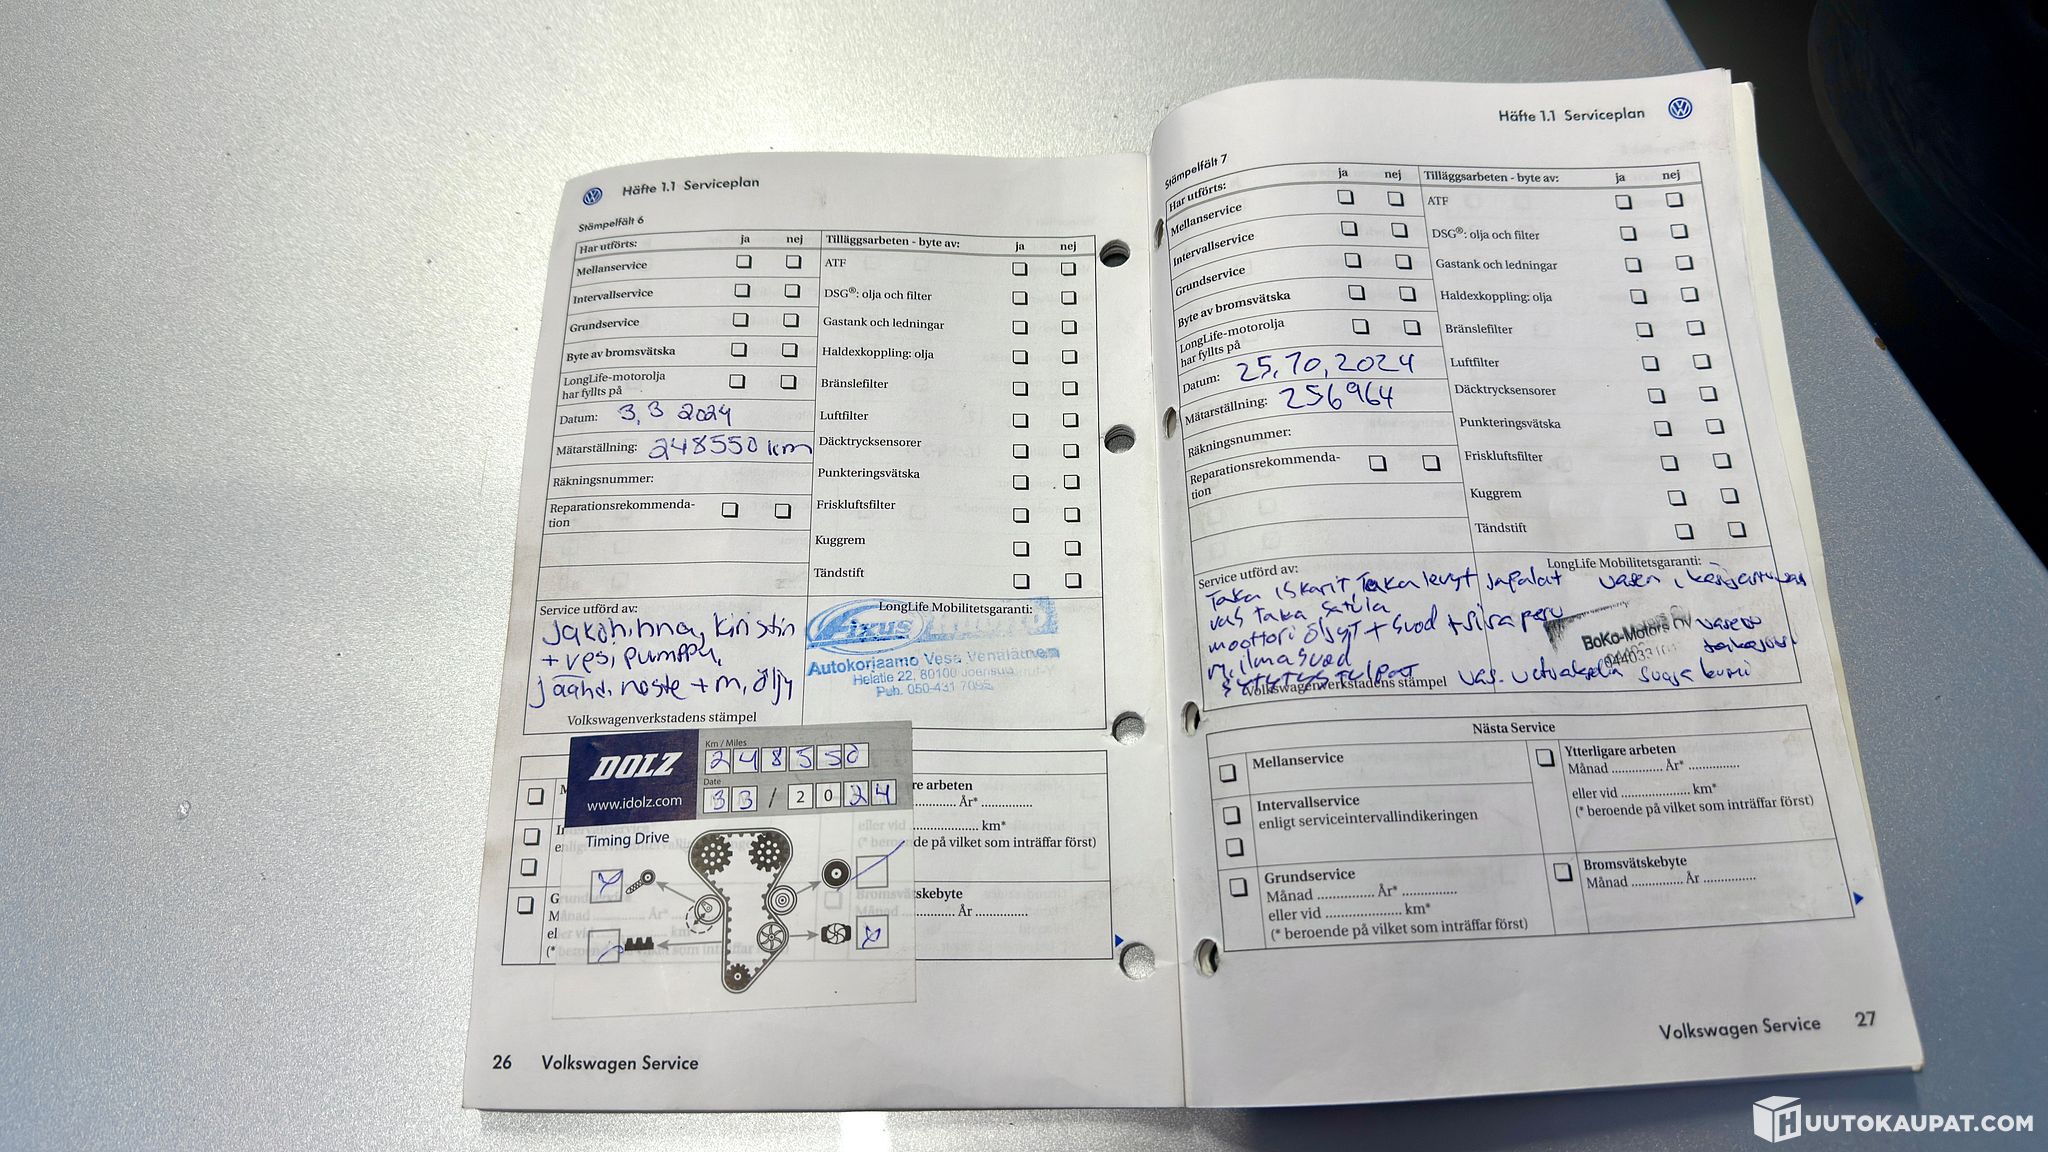 Häfte 1.1 Serviceplan
Stämpelfält 6
Har utförts: ja nej
Mellanservice
Intervallservice
Grundservice
Byte av bromsvätska
LongLife-motorolja
har fyllts på
Datum: 3,3 2024
Mätarställning: 248550 km
Räkningsnummer:
Reparationsrekommenda-
tion
Tilläggsarbeten - byte av: ja nej
ATF
DSG®: olja och filter
Gastank och ledningar
Haldexkoppling: olja
Bränslefilter
Luftfilter
Däcktrycksensorer
Punkteringsvätska
Friskluftsfilter
Kuggrem
Tändstift
Service utförd av:
Jakohihna, kiristin
+ vesi, pumppu,
jäähd, neste + m, öljy
Volkswagenverkstadens stämpel
LongLife Mobilitetsgaranti:
Fixus
Autokorjaamo Vesa Venäläinen
Helatie 22, 80100 Joensuu
Puh. 050-431
DOLZ
www.idolz.com
Km / Miles
248550
Date
33 / 2024
Timing Drive
re arbeten
År*
eller vid km*
(* beroende på vilket som inträffar först)
Bromsvätskebyte
Månad År
26 Volkswagen Service
Häfte 1.1 Serviceplan
Stämpelfält 7
Har utförts: ja nej
Mellanservice
Intervallservice
Grundservice
Byte av bromsvätska
LongLife-motorolja
har fyllts på
Datum: 25,10,2024
Mätarställning: 256964
Räkningsnummer:
Reparationsrekommenda-
tion
Tilläggsarbeten - byte av: ja nej
ATF
DSG®: olja och filter
Gastank och ledningar
Haldexkoppling: olja
Bränslefilter
Luftfilter
Däcktrycksensorer
Punkteringsvätska
Friskluftsfilter
Kuggrem
Tändstift
Service utförd av:
LongLife Mobilitetsgaranti:
Taka iskarit, Taka levyt japalat vasen
vas taka satula
moottori öljyt + suod + siira
m, ilmasuod
sytytystulpat
BoKo-Motors Oy
vas. vetoakselin suoja kumi
Volkswagenverkstadens stämpel
Nästa Service
Mellanservice
Intervallservice
enligt serviceintervallindikeringen
Grundservice
Månad .............. År* ..............
eller vid .................... km*
(* beroende på vilket som inträffar först)
Ytterligare arbeten
Månad .............. År* ..............
eller vid .................... km*
(* beroende på vilket som inträffar först)
Bromsvätskebyte
Månad .............. År ..............
Volkswagen Service 27
HUUTOKAUPAT.COM